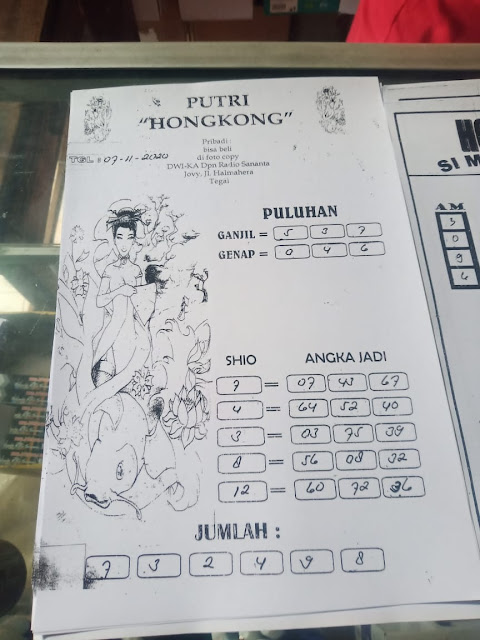 PUTRI
"HONGKONG"
Pribadi :
bisa beli
di foto copy
DWI-KA Dpn Radio Sananta
Jovy, Jl. Halmahera
Tegal
TGL : 07-11-2020
PULUHAN
GANJIL = 5 3 7
GENAP = 0 4 6
SHIO ANGKA JADI
7 = 07 43 67
4 = 64 52 40
3 = 03 75 39
8 = 56 08 32
12 = 60 72 36
JUMLAH :
7 3 2 4 9 8
SI M
AM
3
0
9
6